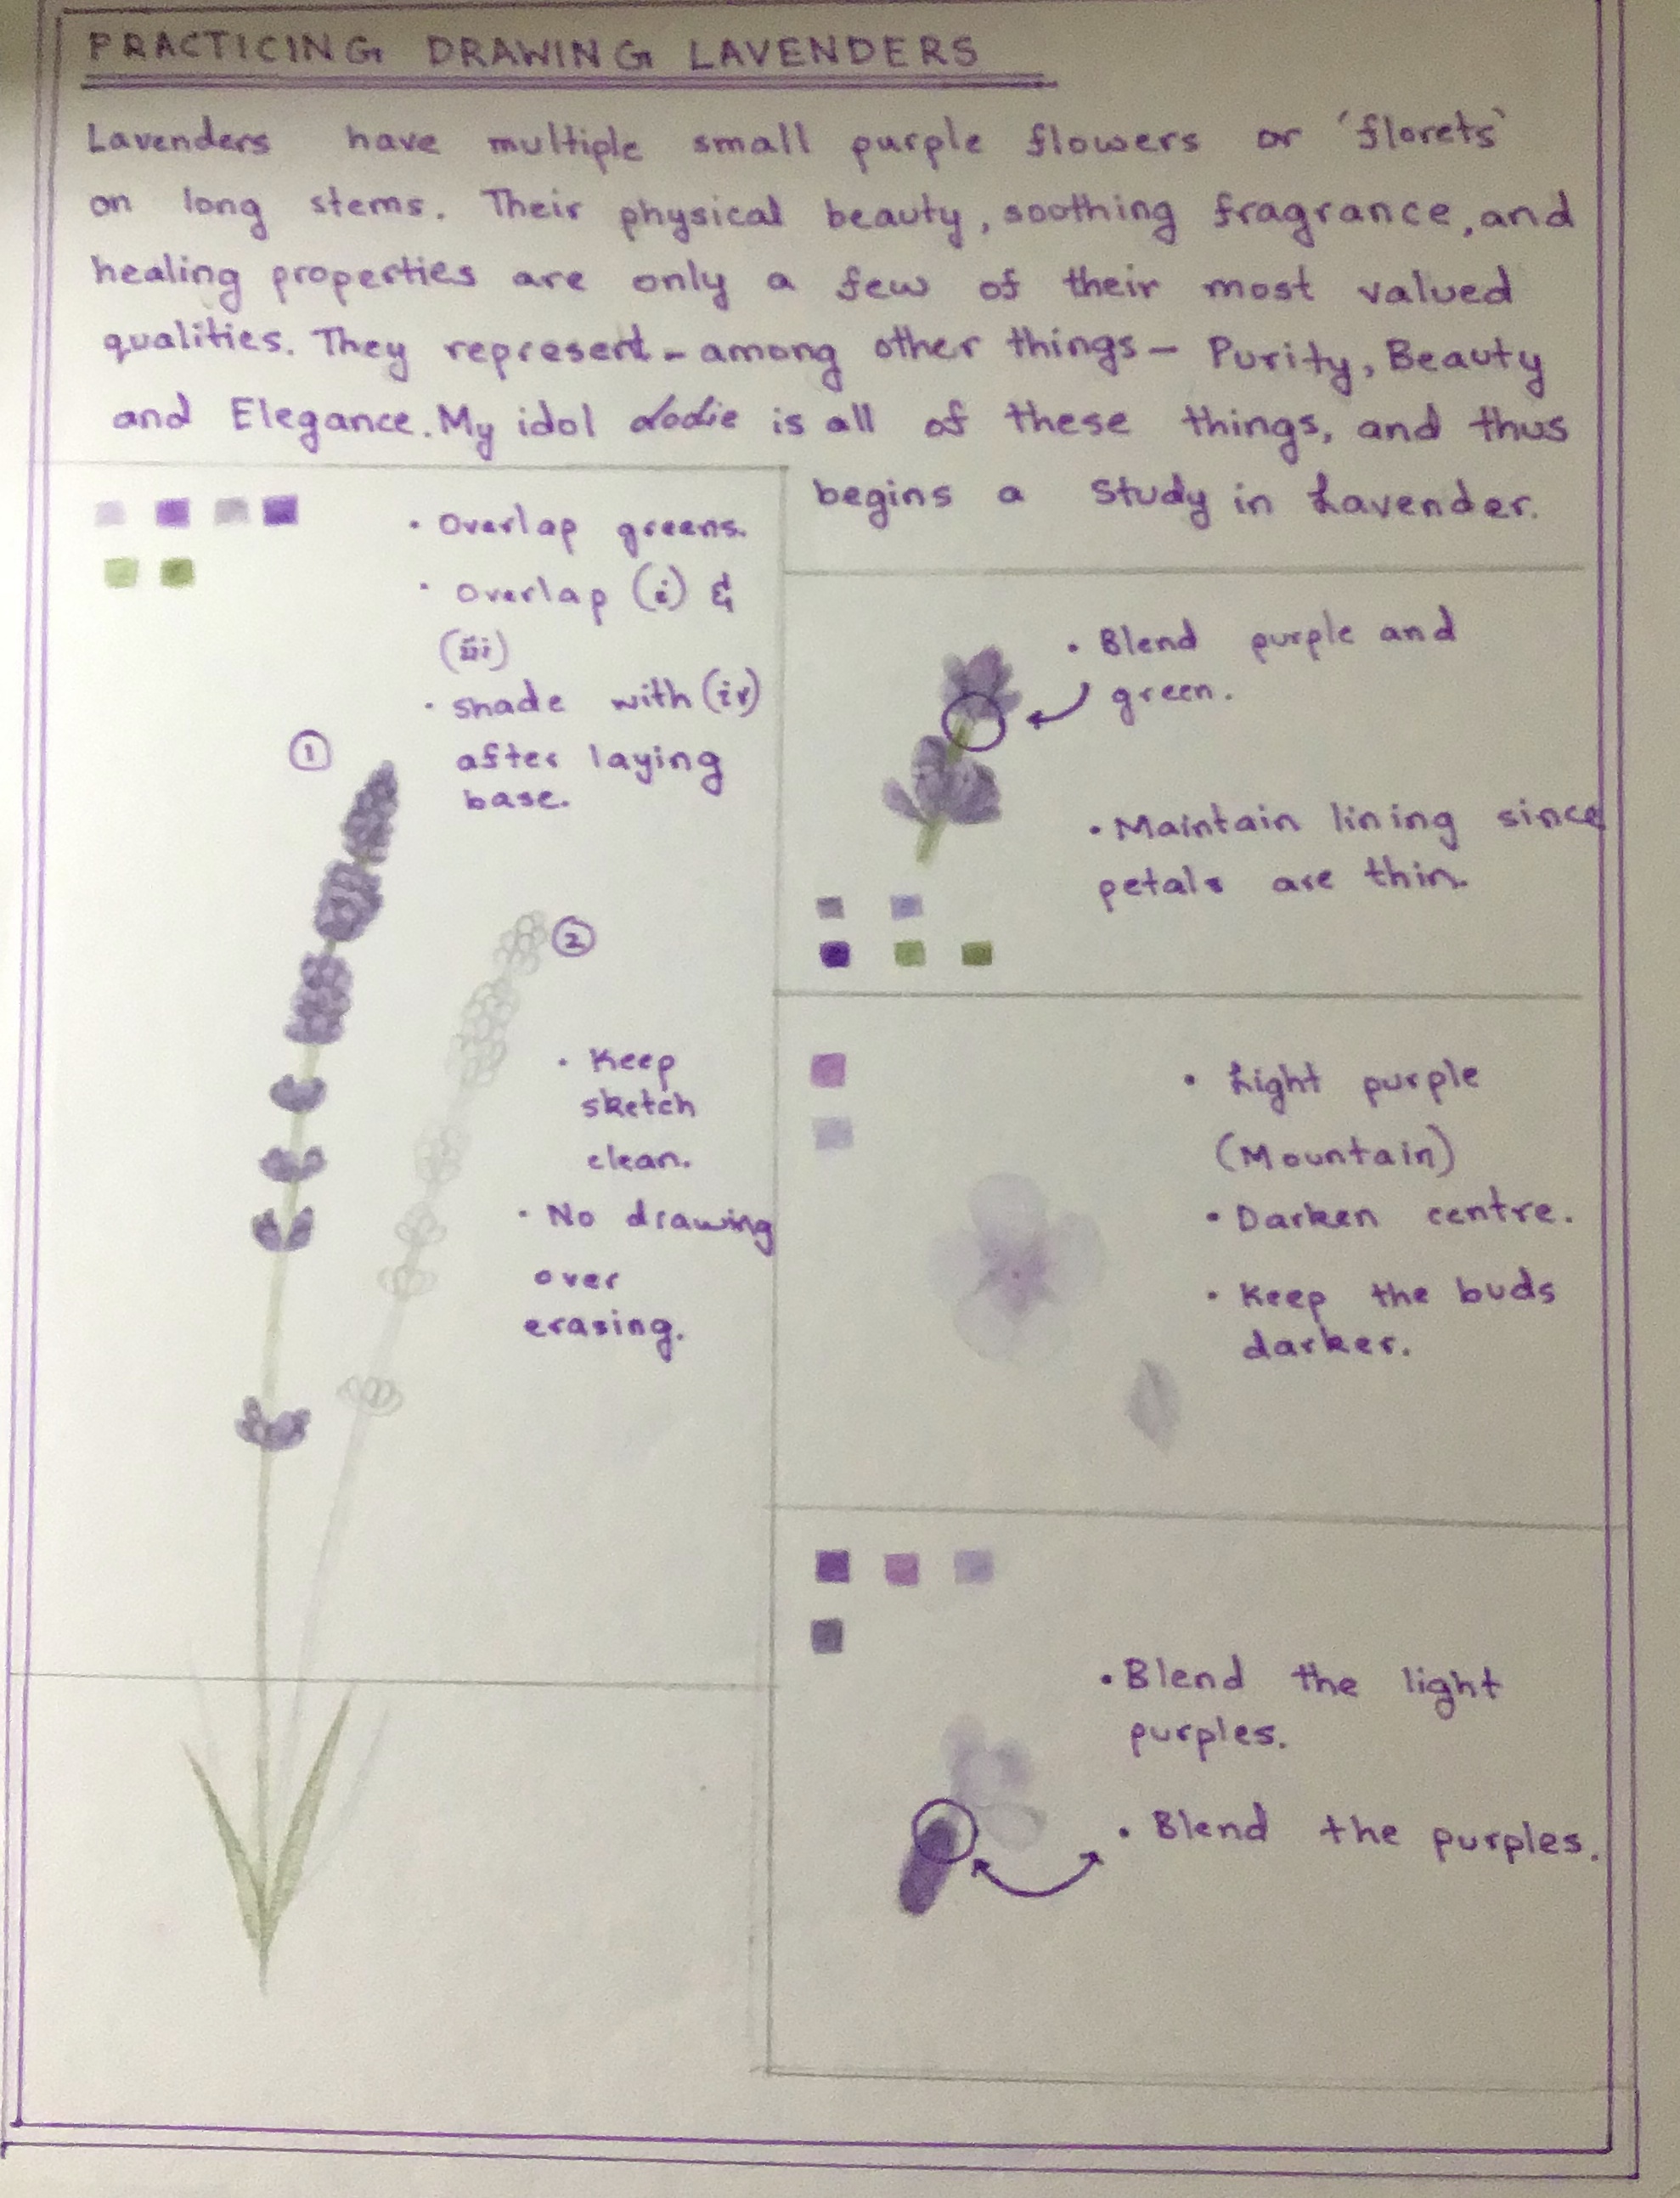 PRACTICING DRAWING LAVENDERS
Lavenders have multiple small purple flowers or 'florets'
on long stems. Their physical beauty, soothing fragrance, and
healing properties are only a few of their most valued
qualities. They represent - among other things - Purity, Beauty
and Elegance. My idol dodie is all of these things, and thus
begins a study in Lavender.
• Overlap greens.
• Overlap (i) &
(iii)
• shade with (iv)
after laying
base.
①
②
• Keep
sketch
clean.
• No drawing
over
erasing.
• Blend purple and
green.
• Maintain lining since
petals are thin.
• Light purple
(Mountain)
• Darken centre.
• Keep the buds
darker.
• Blend the light
purples.
• Blend the purples.